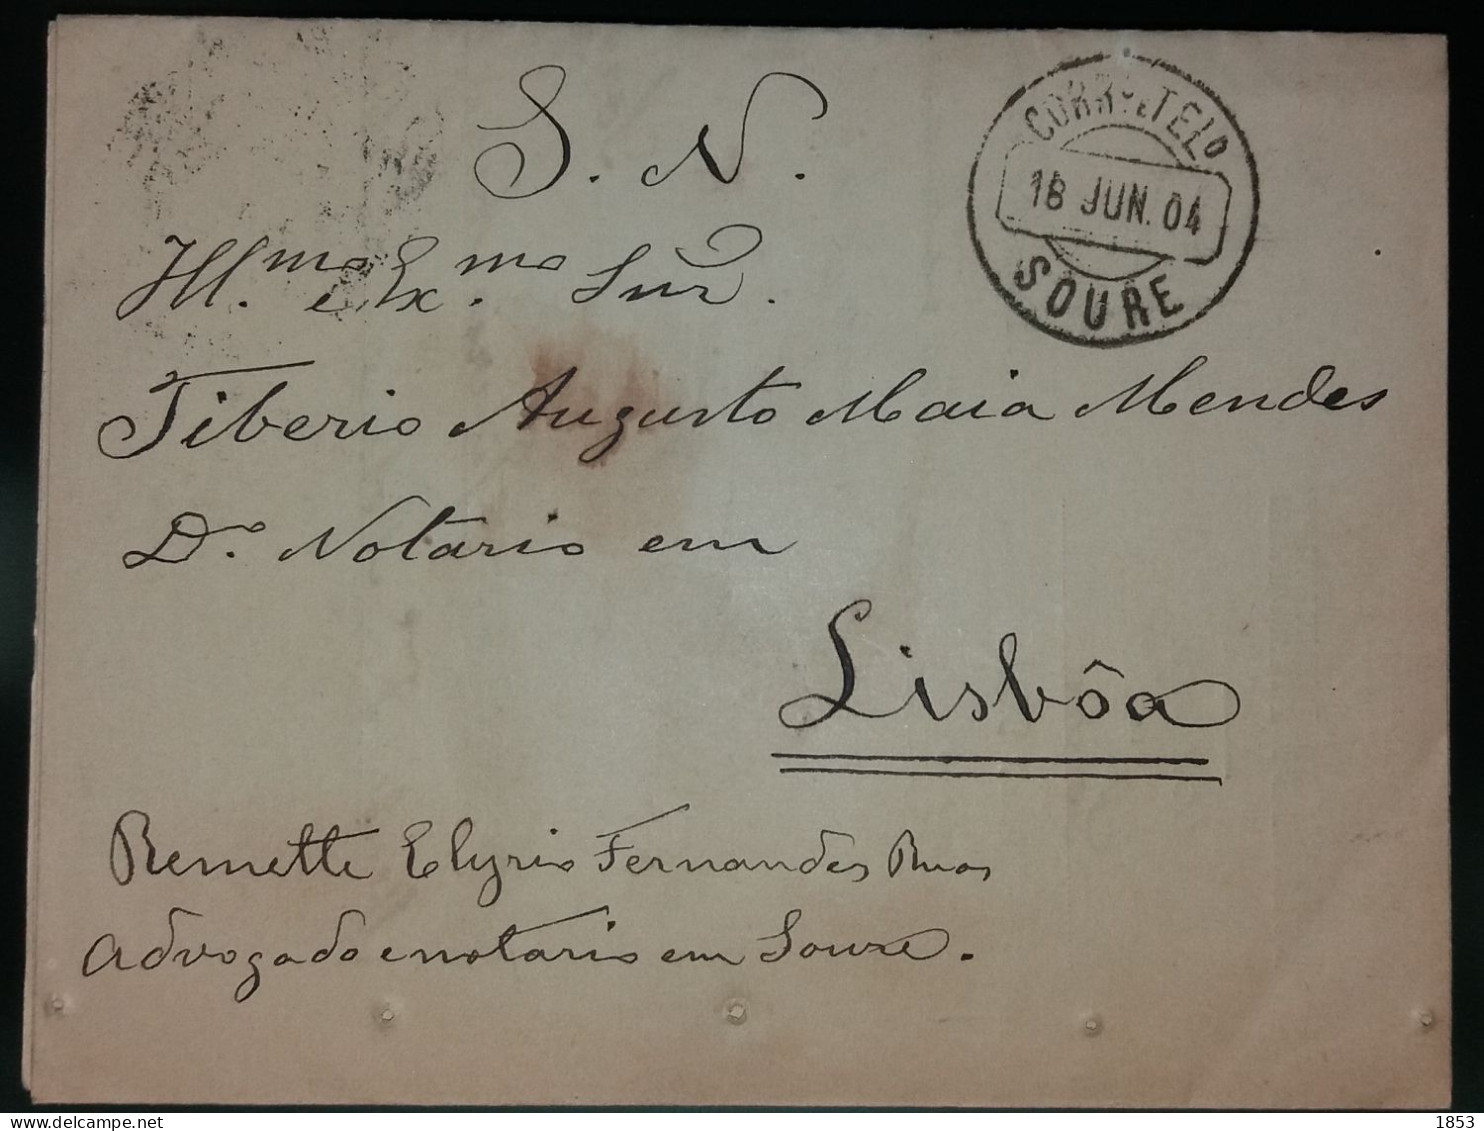 S. N.
CORRº E TELO
18 JUN. 04
SOURE
Ill.mo e Ex.mo Snr.
Tiberio Augusto Maia Mendes
D.º Notario em
Lisbôa
Remette Elyrio Fernandes Ruas
advogado e notario em Soure.
1853